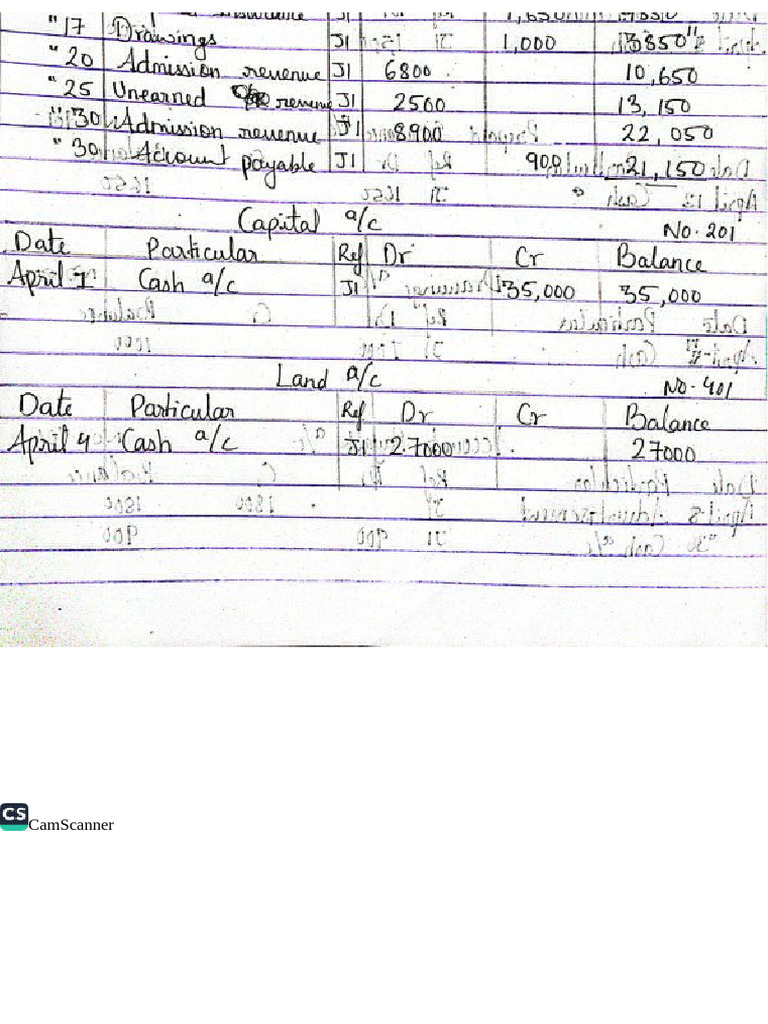 Insurance J1 1,650 4850
"17 Drawings J1 1,000 3850
"20 Admission revenue J1 6800 10,650
"25 Unearned revenue J1 2500 13,150
"30 Admission revenue J1 8900 22,050
"30 Account payable J1 900 21,150
Capital a/c No. 201
Date Particular Ref Dr Cr Balance
April 1 Cash a/c J1 35,000 35,000
Land a/c No. 401
Date Particular Ref Dr Cr Balance
April 4 Cash a/c J1 27000 27000
CS CamScanner